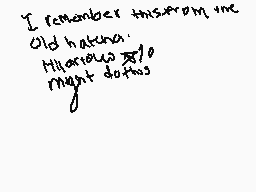 I remember this from the
old hatena.
Hilarious XD
might do this